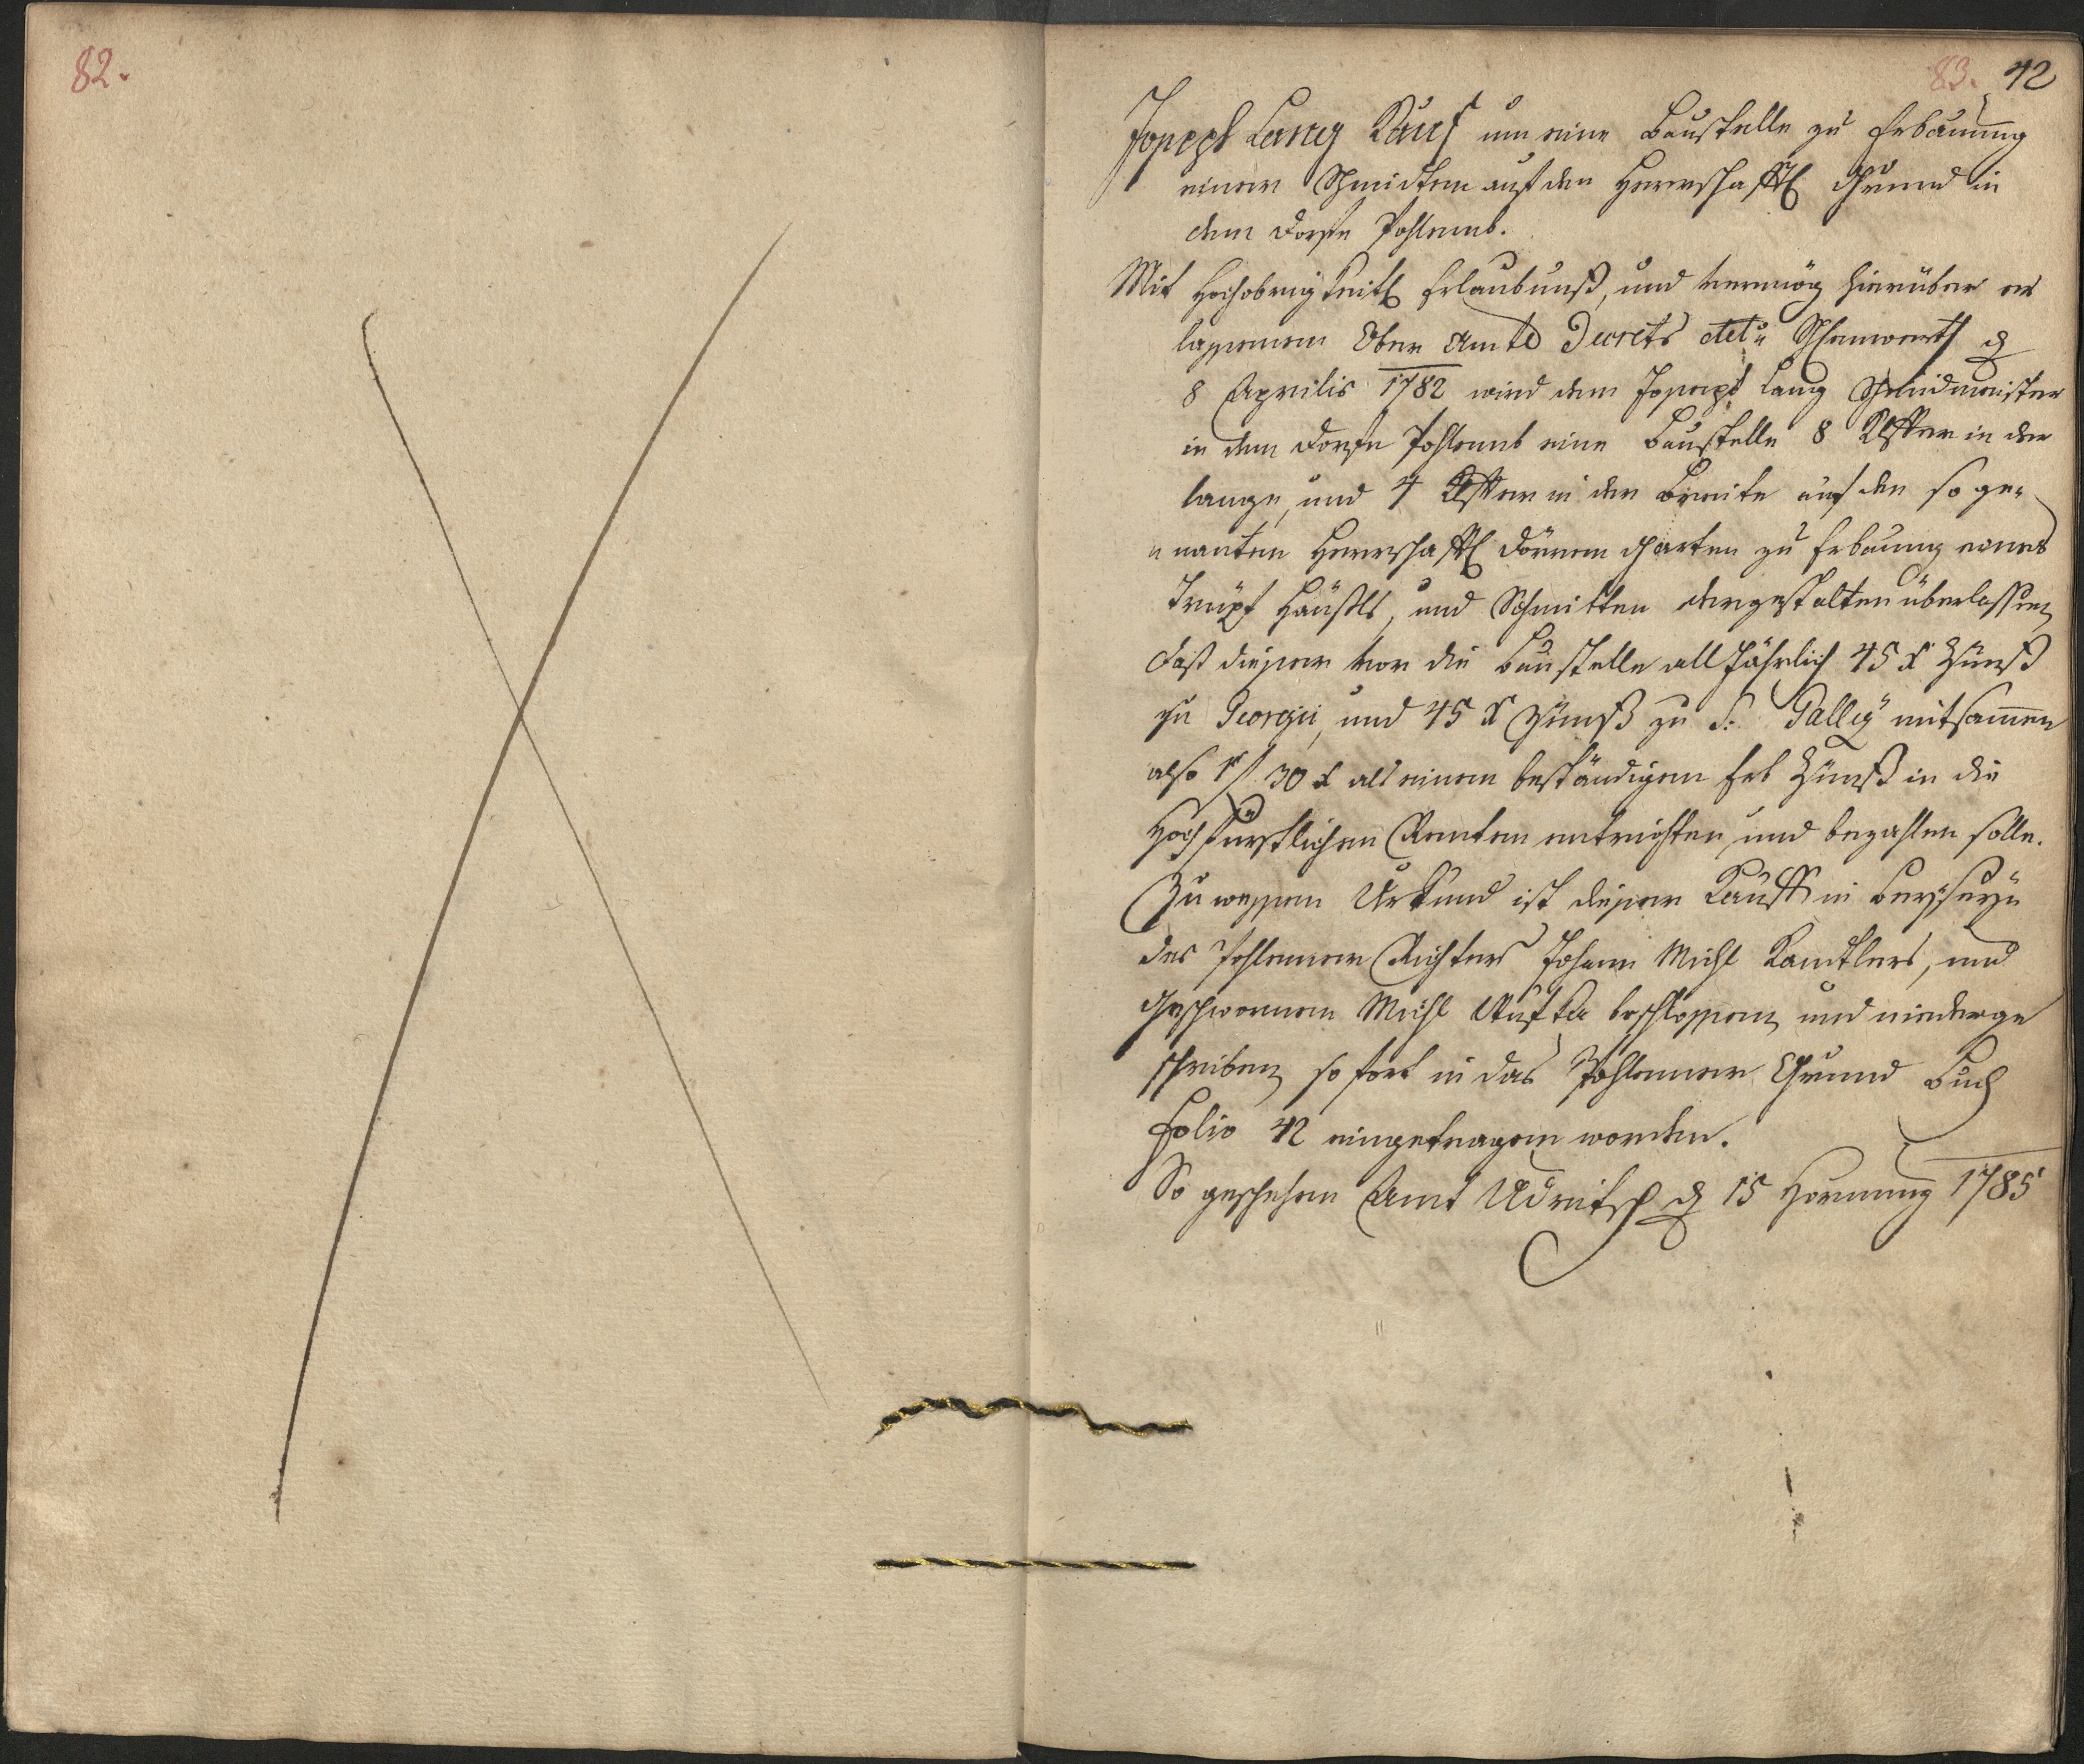 82.
83. 42
Joseph Lang Kauf um eine Baustelle zu Erbauung
einer Schmidten auf den Herrschaftl Grund in
dem Dorfe Pohlemb.
Mit Hochobrigkeitl Erlaubnuß, und vermög hierüber er
lassenem Ober Amts Decrets
8 Aprilis 1782 wird dem Joseph Lang Schmidmeister
in dem Dorfe Pohlemb eine Baustelle 8 Klafter in der
lange, und 4 Klafter in der Breite auf den so ge„
„nanten Herrschaftl Dörren Garten zu Erbauung eines
Trüpf Häußls, und Schmitten dergestalten überlassen,
daß dieser vor die Baustelle all Jährlich 45 x Zünß
zu Georgii, und 45 x Zünß zu S: Gally mitsamen
also 1 f 30 x als einem beständigen Erb Zünß in die
Hochfürstlichen Renten entrichten, und bezahlen solle.
Zu wessen Urkund ist dieser Kauff in Beyseyn
des Pohlemer Richters Johann Michl, und
Geschwornen Michl beschlossen, und niederge
schrieben, so fort in das Pohlemer Grund Buch
Folio 42 eingetragen worden.
So geschehen Amt Udritsch d 15 Hornung 1785